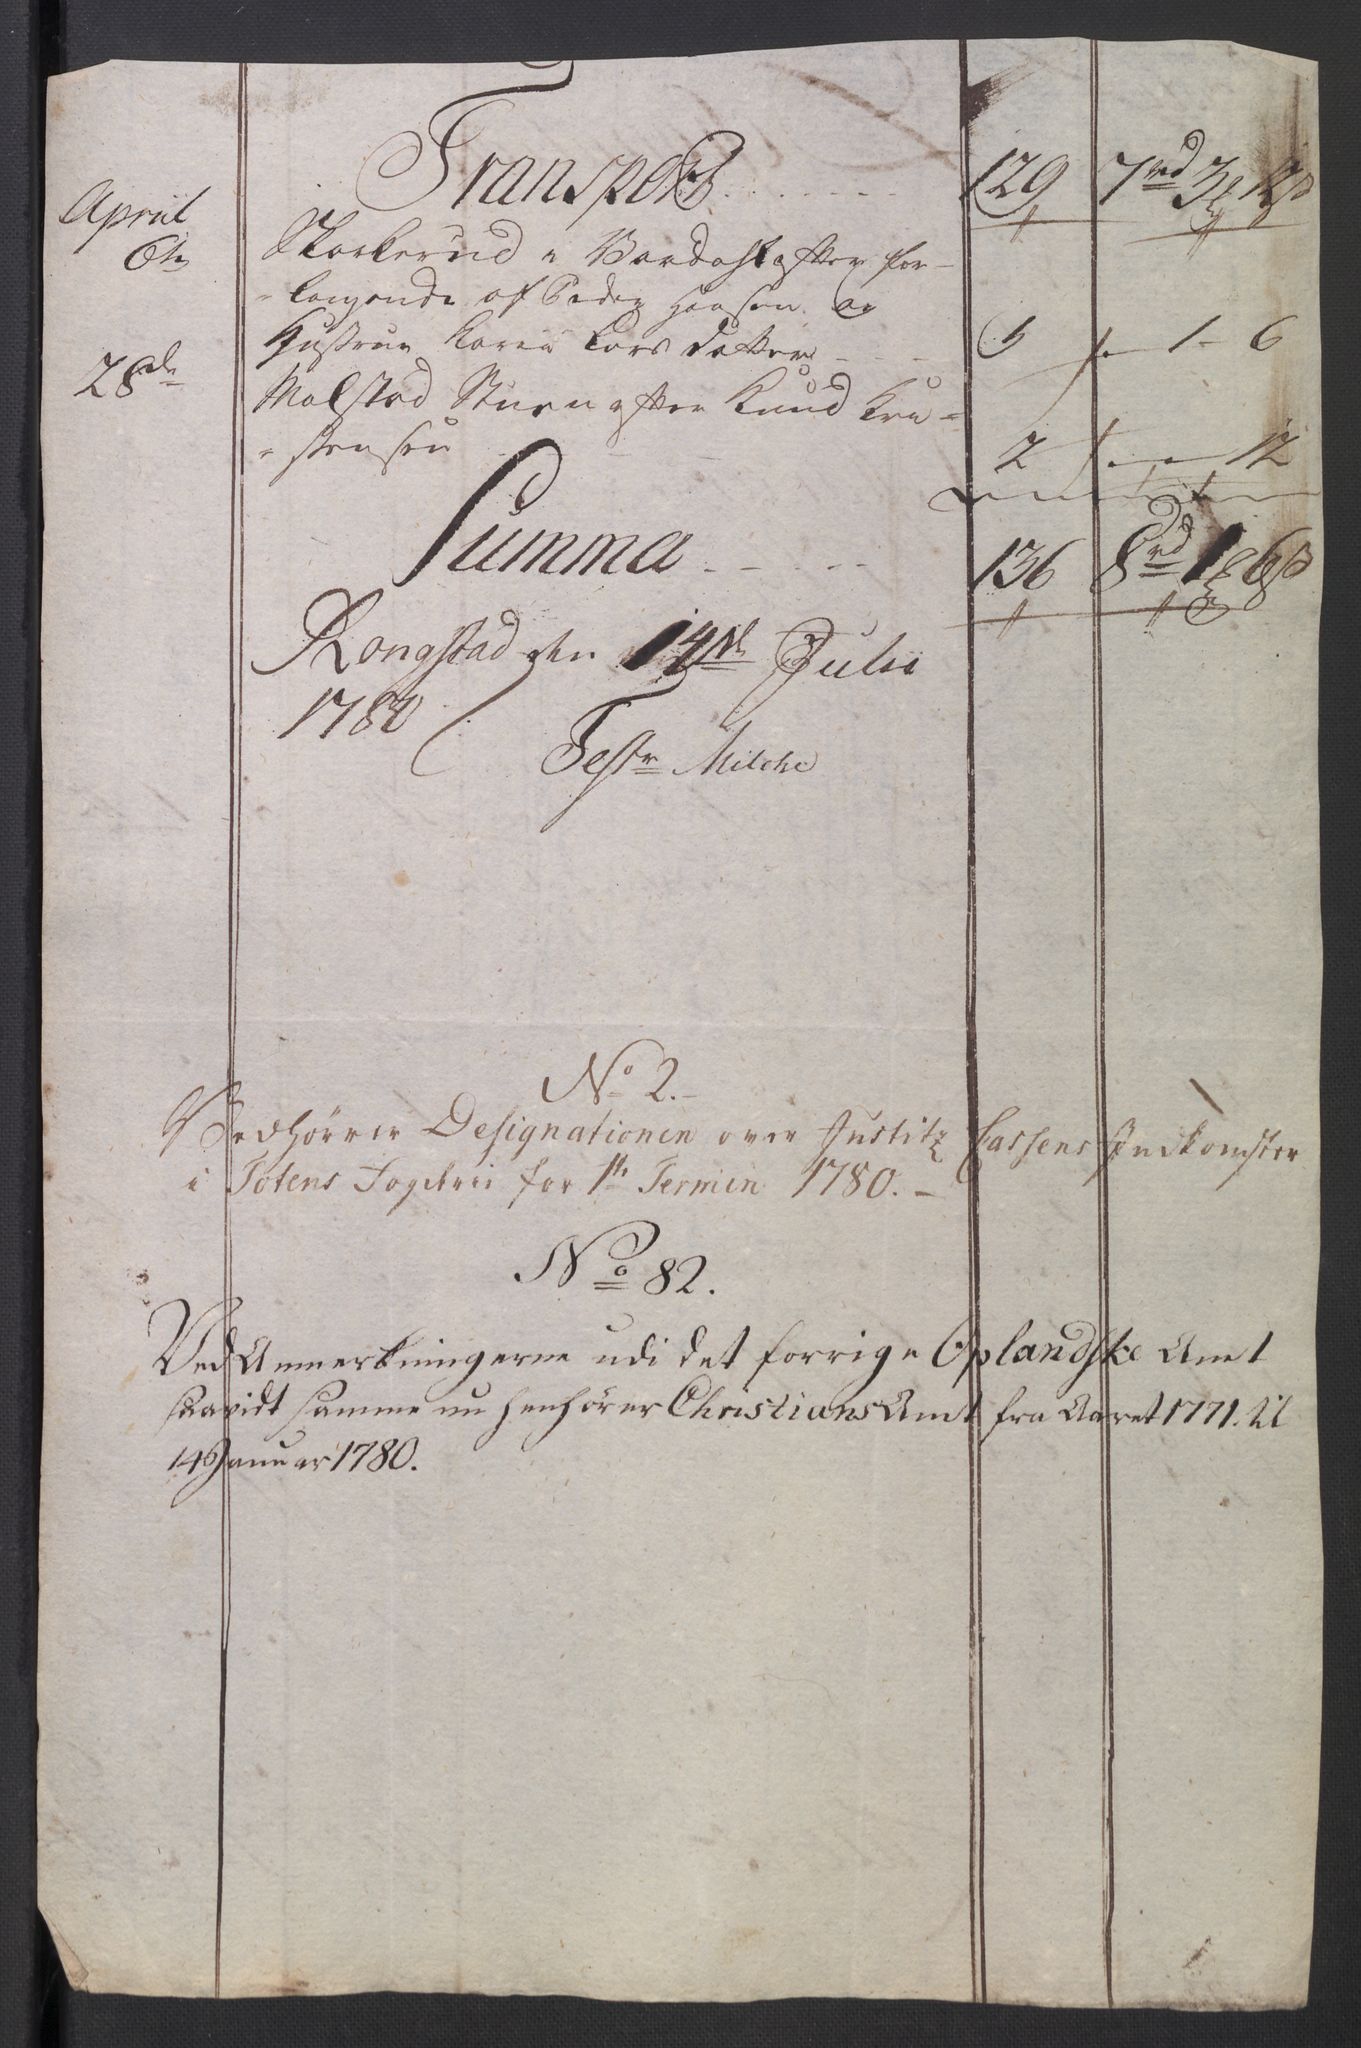 Transport 129 7rd 3 12ß
April
6te Skarkerud i Vardahl efter for-
-langende af Peder Hansen og
Hustrue Karin Lars datter 5 - 1 - 6
28de Molstad Stuen efter Knud Kri-
-stensen 2 - 12
Summa 136 8rd 1 6ß
Rongstad den 14de Julii
1780
Testr Milche
No 2.
Vedhørrer Designationen over Justitz Cassens Indkomster
i Totens Fogderie for 1ste Termin 1780.
No 82.
Ved Anmerkningerne udi det forrige Oplandske Amt
saavidt samme nu henhører Christians Amt fra Aaret 1771. til
14 Januar 1780.